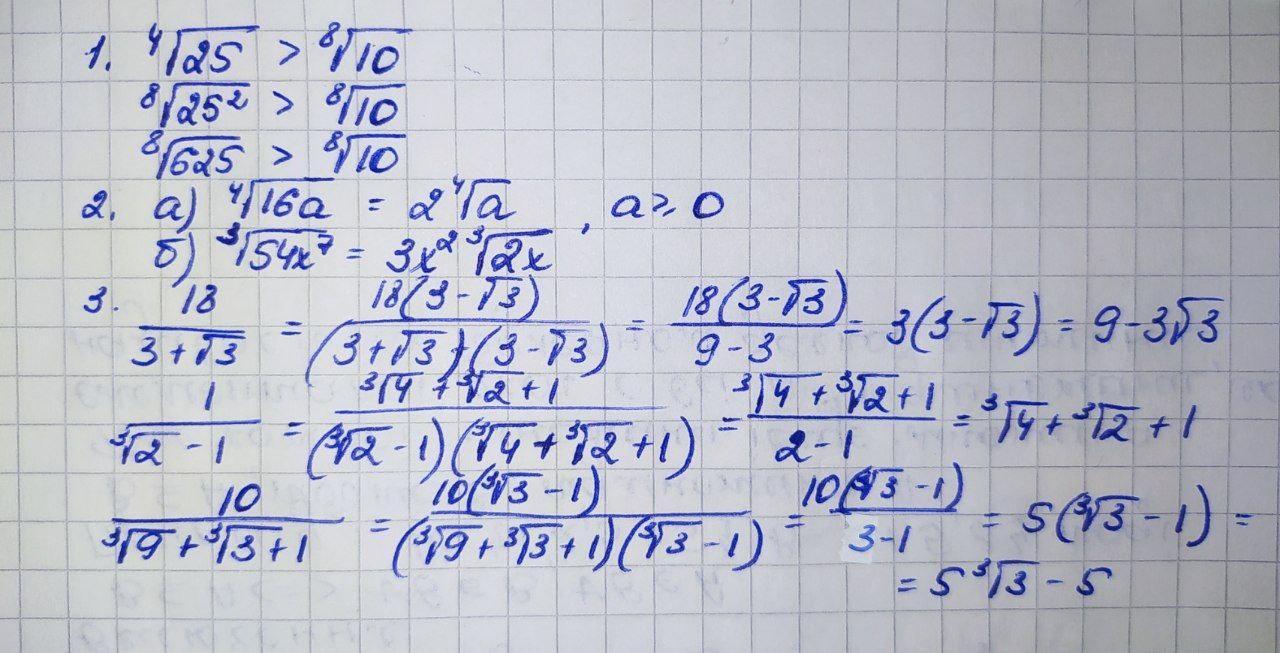 1. ⁴√25 > ⁸√10
⁸√25² > ⁸√10
⁸√625 > ⁸√10
2. а) ⁴√16a = 2 ⁴√a , a ≥ 0
б) ³√54x⁷ = 3x² ³√2x
3. 18/(3+√3) = 18(3-√3)/((3+√3)(3-√3)) = 18(3-√3)/(9-3) = 3(3-√3) = 9-3√3
1/(³√2-1) = (³√4+³√2+1)/((³√2-1)(³√4+³√2+1)) = (³√4+³√2+1)/(2-1) = ³√4+³√2+1
10/(³√9+³√3+1) = 10(³√3-1)/((³√9+³√3+1)(³√3-1)) = 10(³√3-1)/(3-1) = 5(³√3-1) =
= 5 ³√3-5